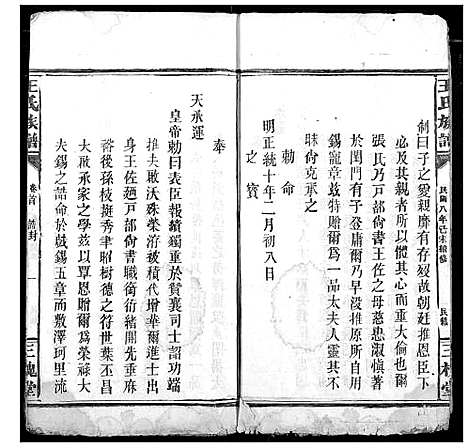 王氏族譜
民國八年己未續修
民鐫
三槐堂
制曰子之愛親靡有存歿故朝廷推恩臣下
必及其親者所以昭激勸而重大倫也爾
張氏乃戶部尚書王佐之母慈忠淑慎著
於閨門有子登庸爾乃早沒推原所自用
錫寵章茲特贈爾爲一品太夫人靈其不
昧尚克承之
勅命
明正統十年二月初八日
之寶
奉
天承運
皇帝勅曰表臣報績獨重於賛襄司士詔功端
推夫敭沃殊榮游被積代增華爾進士出
身王佐廼戶部尚書職銜術能開先垂庥
裕後孫枝挺秀聿昭樹德之符世葉丕昌
大啟承家之學茲以覃恩贈爾爲榮祿大
夫錫之誥命於戲錫五章而敷澤珂里流
王氏族譜
卷首
誥封
一
三槐堂